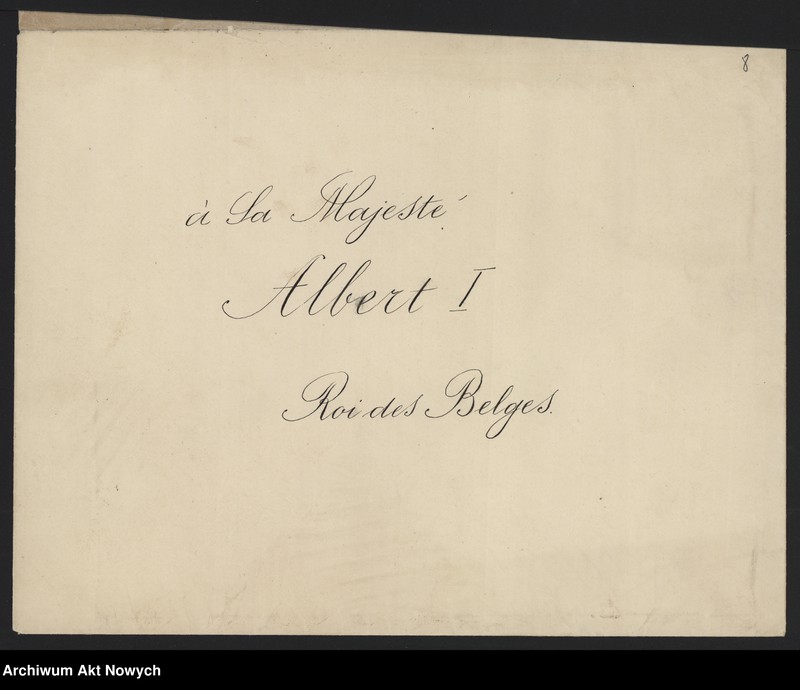 8
à Sa Majesté
Albert I
Roi des Belges.
Archiwum Akt Nowych